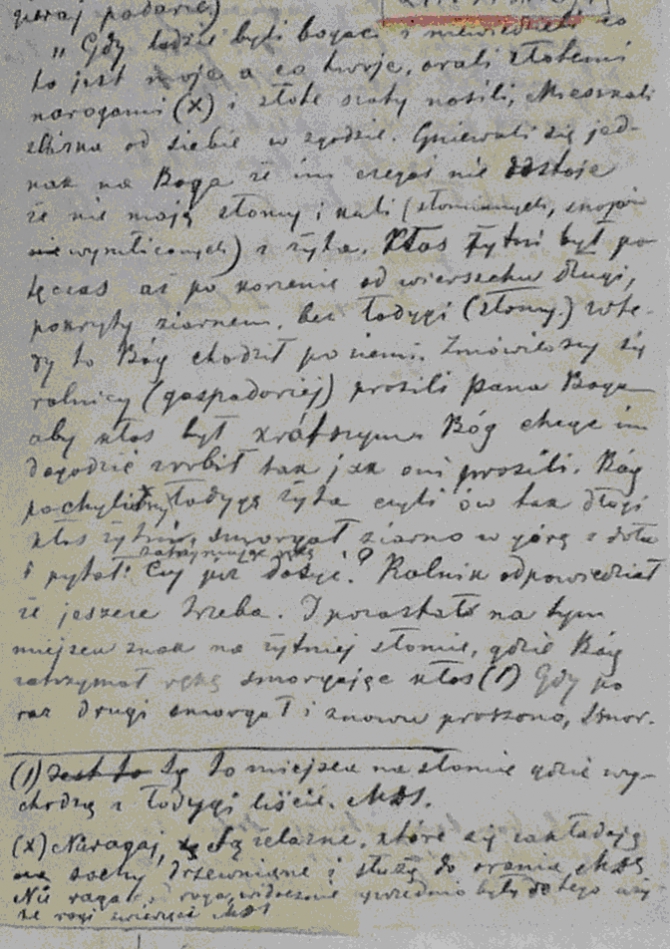 podanie)
„ Gdy ludzie byli bogaci i niewiedzieli co
to jest moje a co twoje, orali złotemi
narogami (x) i złote szaty nosili, Mieszkali
zbliska od siebie w zgodzie. Gniewali się jed-
nak na Boga że im czegoś nie dostaje
że nie mają słomy i kuli (słomianych, snopów
niewymłóconych) z żyta. Kłos żytni był po
tęczas aż po korzenie od wierzchu długi,
pokryty ziarnem, bez łodygi (słomy) wte-
dy to Bóg chodził po ziemi. Zmówiwszy się
rolnicy (gospodariej) prosili Pana Boga
aby kłos był krótszym. Bóg chcąc im
dogodzić zrobił tak jak oni prosili. Bóg
pochylił łodygę żyta czyli ów tak długi
kłos żytni, smorgał ziarno w górę z dołu
zatrzymując rękę
i pytał: Czy już dosyć? Rolnik odpowiedział
że jeszcze trzeba. I pozostał na tym
miejscu znak na żytniej słomie, gdzie Bóg
zatrzymał rękę smorgając kłos (1) Gdy po
raz drugi smorgał i znowu proszono, smor-
(1) Jest to to miejsce na słomie gdzie wy-
chodzą z łodygi liście. MDS.
(x) Narogaj, są żelazne, które się zakładają
na sochy drzewniane i służą do orania, MDS
Na roga od roga, widocznie uprzednio były do tego uży-
te rogi zwierzęce MDS